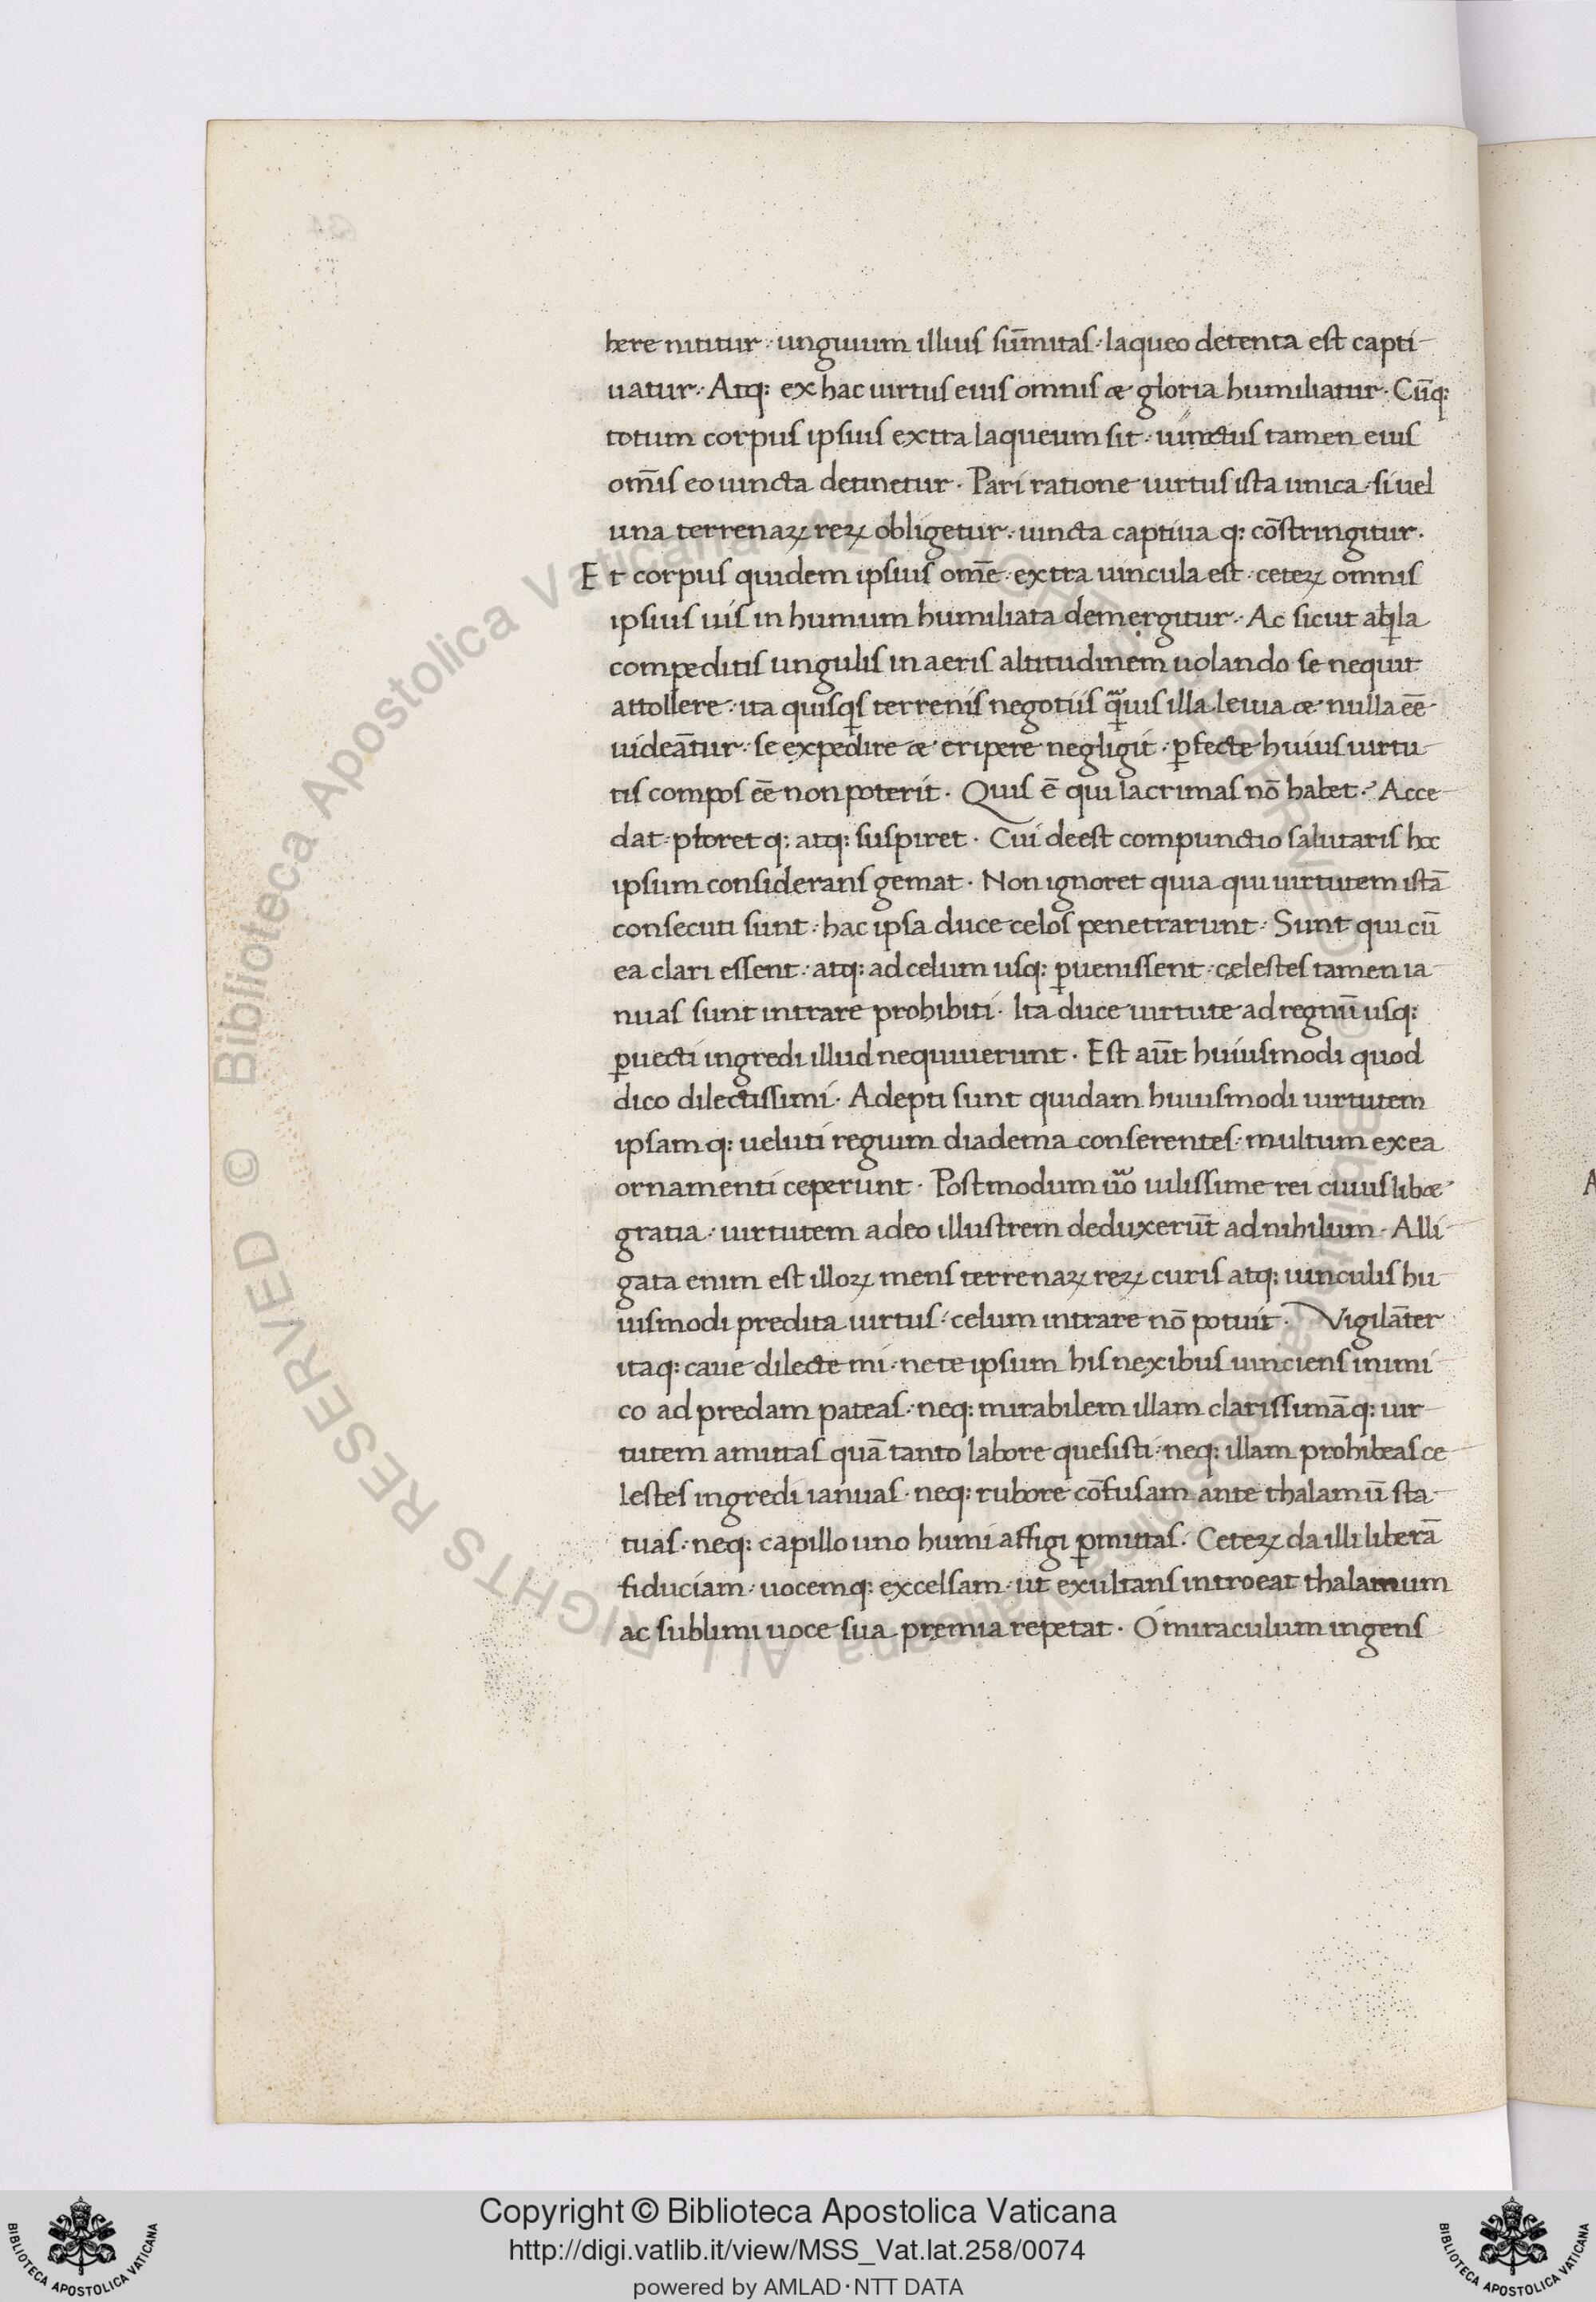 bere nititur · unguium illius sūmitas · laqueo detenta est capti-
uatur · Atq: ex hac uirtus eius omnis & gloria humiliatur · Cūq:
totum corpus ipsius extra laqueum sit · uinctus tamen eius
om̄is eo uincta detinetur · Pari ratione uirtus ista unica · si uel
una terrenaꝝ reꝝ obligetur · uincta captiua q: cōstringitur ·
Et corpus quidem ipsius om̄e · extra uincula est · ceteꝝ omnis
ipsius uis in humum humiliata demergitur · Ac sicut aq̇la
compeditis ungulis in aeris altitudinem uolando se nequit
attollere · ita quisq̇s terrenis negotiis q̃uis illa leuia & nulla eē
uideāntur · se expedire & eripere negligit · ꝑfecte huius uirtu-
tis compos eē non poterit · Quis ē qui lacrimas nō habet ·? Acce-
dat · ploret q: atq: suspiret · Cui deest compunctio salutaris hoc
ipsum considerans gemat · Non ignoret quia qui uirtutem istā
consecuti sunt · hac ipsa duce celos penetrarunt · Sunt qui cū
ea clari essent · atq: ad celum usq: ꝑuenissent · cęlestes tamen ia-
nuas sunt intrare prohibiti · Ita duce uirtute ad regnū usq:
ꝑuecti ingredi illud nequiuerunt · Est aūt huiusmodi quod
dico dilectissimi · Adepti sunt quidam huiusmodi uirtutem
ipsam q: ueluti regium diadema conserentes · multum ex ea
ornamenti ceperunt · Postmodum ũo uilissime rei cuius lib&
gratia · uirtutem adeo illustrem deduxerūt ad nihilum · Alli-
gata enim est illoꝝ mens terrenaꝝ reꝝ curis atq: uinculis hu-
iusmodi predita uirtus · celum intrare nō potuit · Vigilāter
itaq: caue dilecte mi · ne te ipsum his nexibus uinciens inimi-
co ad predam pateas · neq: mirabilem illam clarissimā q: uir-
tutem amittas quā tanto labore quesisti · neq: illam prohibeas ce-
lestes ingredi ianuas · neq: rubore cōfusam ante thalamū sta-
tuas · neq: capillo uno humi affigi ꝑmittas · Ceteꝝ da illi liberā
fiduciam · uocemq: excelsam · ut exultans introeat thalamum
ac sublimi uoce sua pręmia repetat · O miraculum ingens
Copyright © Biblioteca Apostolica Vaticana
http://digi.vatlib.it/view/MSS_Vat.lat.258/0074
powered by AMLAD·NTT DATA
BIBLIOTECA APOSTOLICA VATICANA
BIBLIOTECA APOSTOLICA VATICANA
© Biblioteca Apostolica Vaticana ALL RIGHTS RESERVED
© Biblioteca Apostolica Vaticana ALL RIGHTS RESERVED